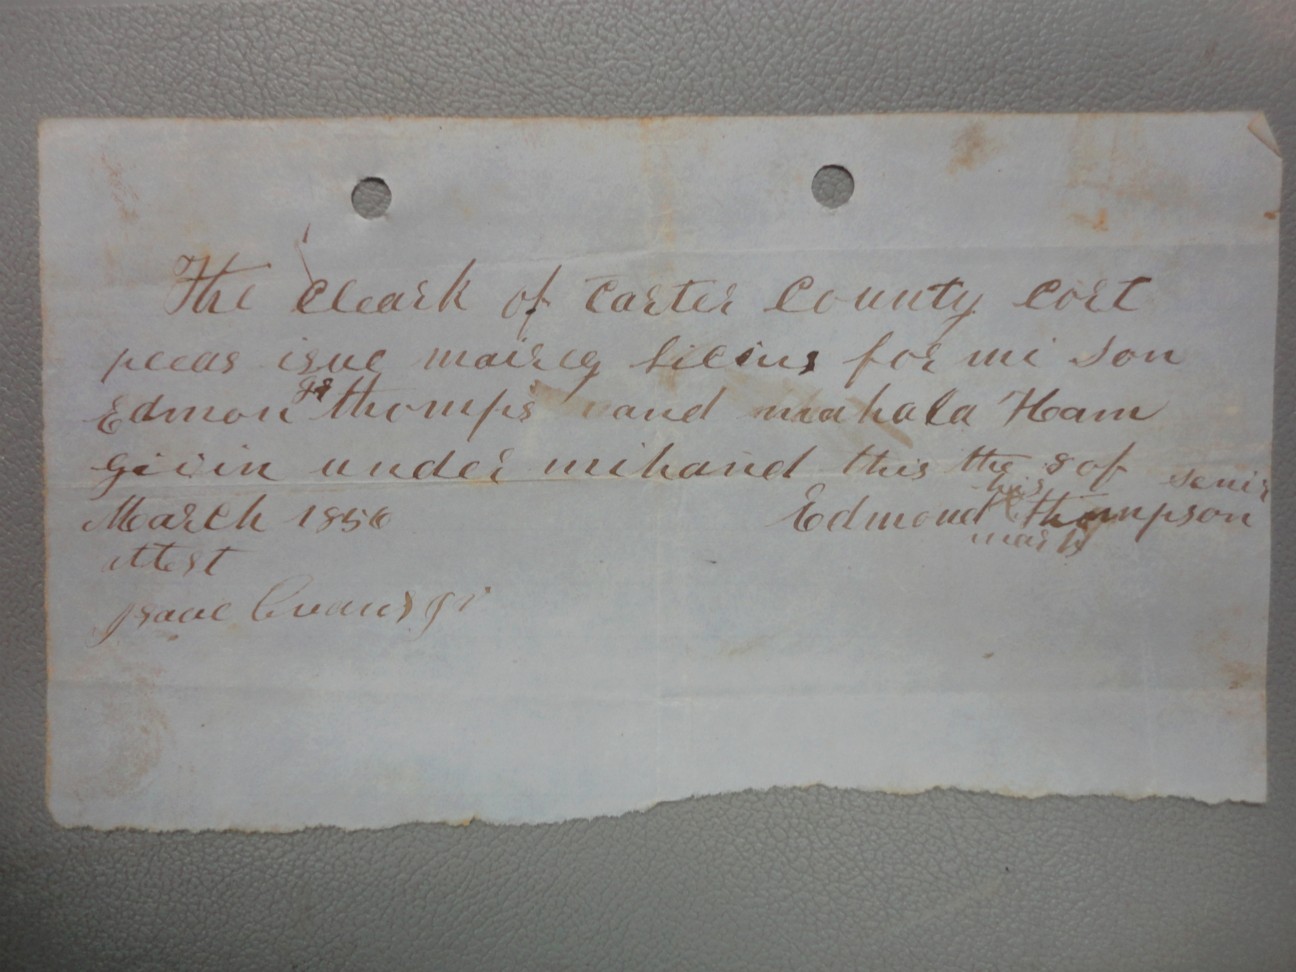 The Cleark of Carter County Cort
pleas isue mairig licins for mi Son
Edmon Jr thomps and mahala Ham
givin under mi hand this the 8 of
March 1856 Edmond his X mark Thompson senir
Attest
Isaac Evans jr